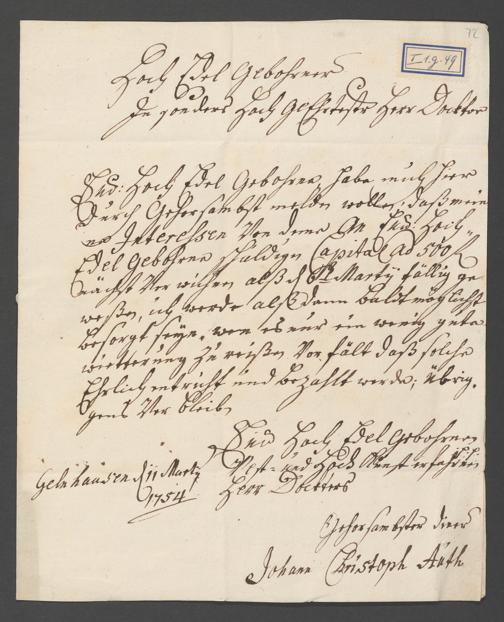 72
I. 1. g. 49
Hoch Edel Gebohrner
In sonders Hoch GeEhrtester Herr Docktor
Hoch Edel Gebohrne habe mich hier
Durch Gehorsambst melden wollen, daß mein
Interessen Von denen An Hoch-
Edel Gebohrne schuldigen Capital ad 500 f
nächst Ver wichen alß d Marty fällig ge
weßen, ich werde alß dann baldt möglichst
besorgt seyn, wen es nur ein wenig gute
wietterung zu reißen Vor fält daß solche
Ehrlich entricht und bezahlt werde, übrig.
gens Ver bleib
Hoch Edel Gebohrnen
Vest- und Hoch Kunst erfahrnen
Herr Docktors
Gelnhausen d 11 Marty
1754
Gehorsambster diener
Johann Christoph Auth